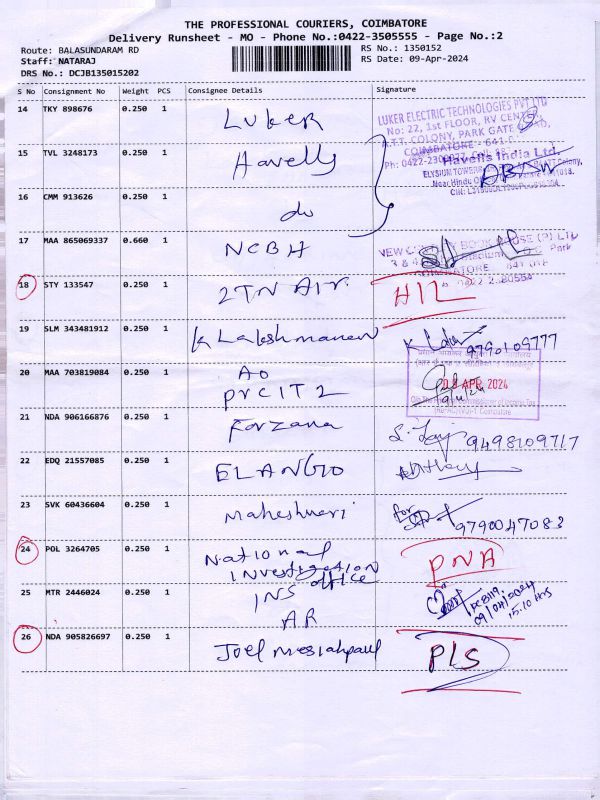 THE PROFESSIONAL COURIERS, COIMBATORE
Delivery Runsheet - MO - Phone No.:0422-3505555 - Page No.:2
Route: BALASUNDARAM RD RS No.: 1350152
Staff: NATARAJ RS Date: 09-Apr-2024
DRS No.: DCJB135015202
S No Consignment No Weight PCS Consignee Details Signature
14 TKY 898676 0.250 1 Luker
LUKER ELECTRIC TECHNOLOGIES PVT LTD
No: 22, 1st FLOOR, RV CENTRE
A.T.T. COLONY, PARK GATE ROAD,
COIMBATORE - 641
15 TVL 3248173 0.250 1 Havells
Havells India Ltd.
ELYSIUM TOWER Colony,
16 CMM 913626 0.250 1 do
17 MAA 865069337 0.660 1 NCBH
BOOK HOUSE (P) LTD
COIMBATORE
18 STY 133547 0.250 1 2TN Air. HIL
19 SLM 343481912 0.250 1 K Lakshmanan 9790109777
20 MAA 703819084 0.250 1 AO
PrCIT 2
APR 2024
21 NDA 906166876 0.250 1 Farzana 9498109717
22 EDQ 21557085 0.250 1 ELANGO
23 SVK 60436604 0.250 1 Maheshwari for 9790047083
24 POL 3264705 0.250 1 National
Investigation
office
PNA
25 MTR 2446024 0.250 1 INS
AR
09/04/2024
15.10 Hrs
26 NDA 905826697 0.250 1 Joel Messiahpaul PLS